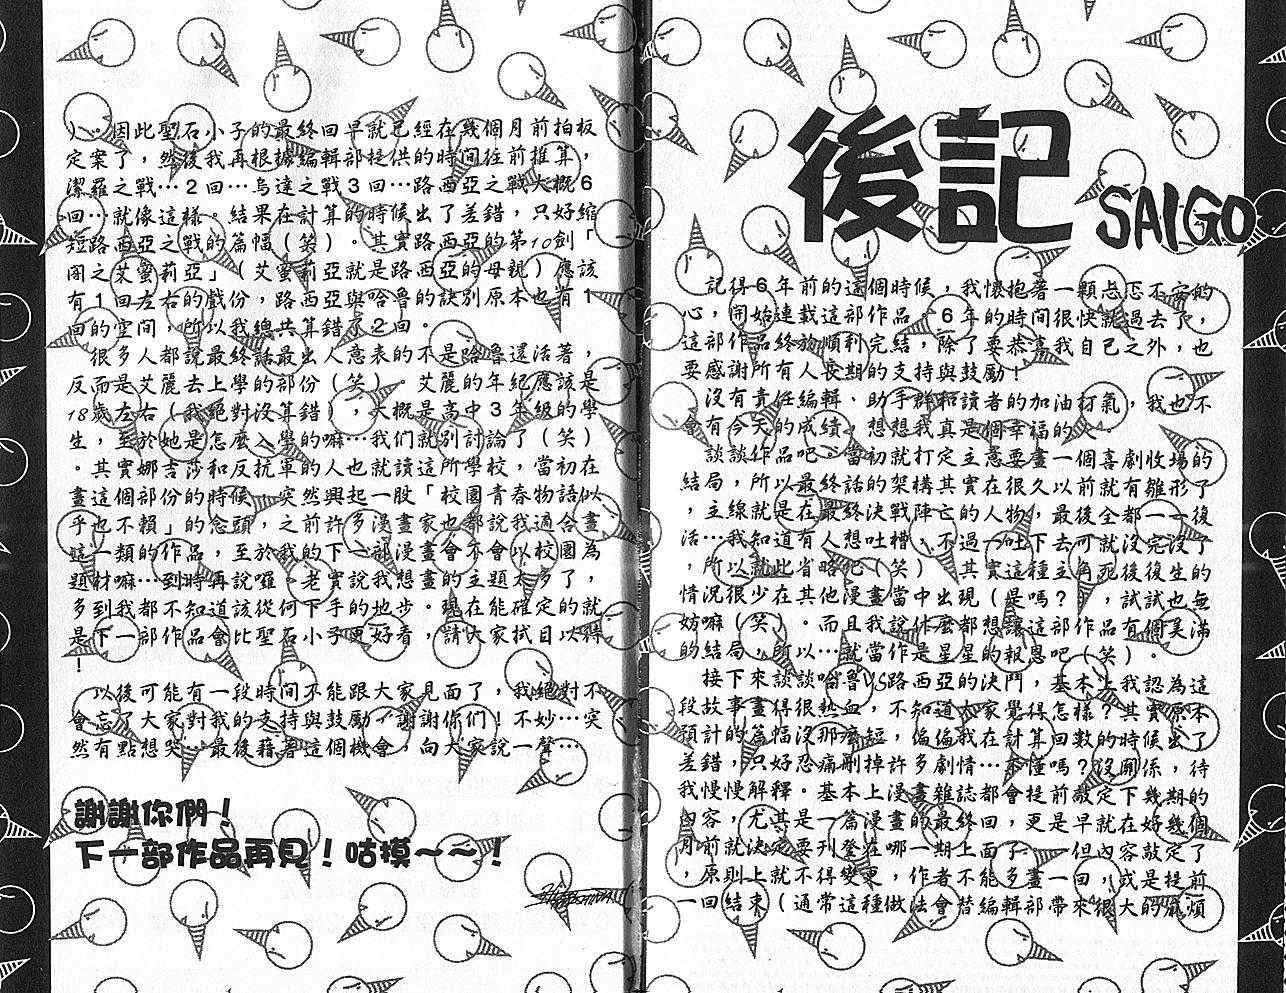 後記 SAIGO
記得6年前的這個時候，我懷抱著一顆忐忑不安的
心，開始連載這部作品。6年的時間很快就過去了，
這部作品終於順利完結，除了要恭喜我自己之外，也
要感謝所有人長期的支持與鼓勵！
沒有責任編輯、助手群和讀者的加油打氣，我也不
會有今天的成績。想想我真是個幸福的人。
談談作品吧。當初就打定主意要畫一個喜劇收場的
結局，所以最終話的架構其實在很久以前就有雛形了
，主線就是在最終決戰陣亡的人物，最後全都一一復
活…我知道有人想吐槽，不過一吐下去可就沒完沒了
，所以就此省略吧（笑）。其實這種主角死後復生的
情況很少在其他漫畫當中出現（是嗎？），試試也無
妨嘛（笑）。而且我說什麼都想讓這部作品有個美滿
的結局，所以…就當作是星星的報恩吧（笑）。
接下來談談哈魯VS路西亞的決鬥，基本上我認為這
段故事畫得很熱血，不知道大家覺得怎樣？其實原本
預計的篇幅沒那麼短，偏偏我在計算回數的時候出了
差錯，只好忍痛刪掉許多劇情…不懂嗎？沒關係，待
我慢慢解釋。基本上漫畫雜誌都會提前敲定下幾期的
內容，尤其是一篇漫畫的最終回，更是早就在好幾個
月前就決定要刊登在哪一期上面了。一但內容敲定了
，原則上就不得變更，作者不能多畫一回，或是提前
一回結束（通常這種做法會替編輯部帶來很大的麻煩
）…因此聖石小子的最終回早就已經在幾個月前拍板
定案了，然後我再根據編輯部提供的時間往前推算，
潔羅之戰…2回…烏達之戰3回…路西亞之戰大概6
回…就像這樣。結果在計算的時候出了差錯，只好縮
短路西亞之戰的篇幅（笑）。其實路西亞的第10劍「
闇之艾蜜莉亞」（艾蜜莉亞就是路西亞的母親）應該
有1回左右的戲份，路西亞與哈魯的訣別原本也有1
回的空間，所以我總共算錯了2回。
很多人都說最終話最出人意表的不是哈魯還活著，
反而是艾麗去上學的部份（笑）。艾麗的年紀應該是
18歲左右（我絕對沒算錯），大概是高中3年級的學
生，至於她是怎麼入學的嘛…我們就別討論了（笑）
。其實娜吉莎和反抗軍的人也就讀這所學校，當初在
畫這個部份的時候，突然興起一股「校園青春物語似
乎也不賴」的念頭，之前許多漫畫家也都說我適合畫
這一類的作品，至於我的下一部漫畫會不會以校園為
題材嘛…到時再說囉。老實說我想畫的主題太多了，
多到我都不知道該從何下手的地步。現在能確定的就
是下一部作品會比聖石小子更好看，請大家拭目以待
！
以後可能有一段時間不能跟大家見面了，我絕對不
會忘了大家對我的支持與鼓勵。謝謝你們！不妙…突
然有點想哭。最後藉著這個機會，向大家說一聲…
謝謝你們！
下一部作品再見！咕摸～～！